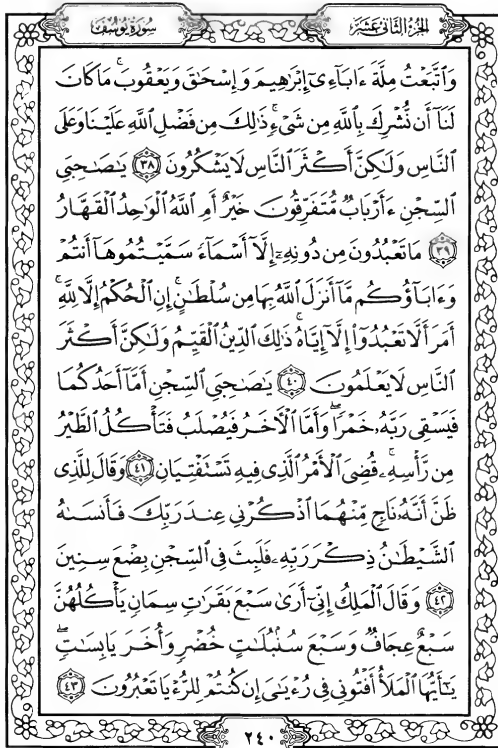 سُورَةُ يُوسُفَ
الجُزْءُ الثَّانِي عَشَرَ
وَاتَّبَعْتُ مِلَّةَ ءَابَآءِىٓ إِبْرَٰهِيمَ وَإِسْحَٰقَ وَيَعْقُوبَ ۚ مَا كَانَ
لَنَآ أَن نُّشْرِكَ بِٱللَّهِ مِن شَىْءٍ ۚ ذَٰلِكَ مِن فَضْلِ ٱللَّهِ عَلَيْنَا وَعَلَى
ٱلنَّاسِ وَلَٰكِنَّ أَكْثَرَ ٱلنَّاسِ لَا يَشْكُرُونَ ﴿٣٨﴾ يَٰصَٰحِبَىِ
ٱلسِّجْنِ ءَأَرْبَابٌ مُّتَفَرِّقُونَ خَيْرٌ أَمِ ٱللَّهُ ٱلْوَٰحِدُ ٱلْقَهَّارُ
﴿٣٩﴾ مَا تَعْبُدُونَ مِن دُونِهِۦٓ إِلَّآ أَسْمَآءً سَمَّيْتُمُوهَآ أَنتُمْ
وَءَابَآؤُكُم مَّآ أَنزَلَ ٱللَّهُ بِهَا مِن سُلْطَٰنٍ ۚ إِنِ ٱلْحُكْمُ إِلَّا لِلَّهِ ۚ
أَمَرَ أَلَّا تَعْبُدُوٓا۟ إِلَّآ إِيَّاهُ ۚ ذَٰلِكَ ٱلدِّينُ ٱلْقَيِّمُ وَلَٰكِنَّ أَكْثَرَ
ٱلنَّاسِ لَا يَعْلَمُونَ ﴿٤٠﴾ يَٰصَٰحِبَىِ ٱلسِّجْنِ أَمَّآ أَحَدُكُمَا
فَيَسْقِى رَبَّهُۥ خَمْرًا ۖ وَأَمَّا ٱلْءَاخَرُ فَيُصْلَبُ فَتَأْكُلُ ٱلطَّيْرُ
مِن رَّأْسِهِۦ ۚ قُضِىَ ٱلْأَمْرُ ٱلَّذِى فِيهِ تَسْتَفْتِيَانِ ﴿٤١﴾ وَقَالَ لِلَّذِى
ظَنَّ أَنَّهُۥ نَاجٍ مِّنْهُمَا ٱذْكُرْنِى عِندَ رَبِّكَ فَأَنسَىٰهُ
ٱلشَّيْطَٰنُ ذِكْرَ رَبِّهِۦ فَلَبِثَ فِى ٱلسِّجْنِ بِضْعَ سِنِينَ
﴿٤٢﴾ وَقَالَ ٱلْمَلِكُ إِنِّىٓ أَرَىٰ سَبْعَ بَقَرَٰتٍ سِمَانٍ يَأْكُلُهُنَّ
سَبْعٌ عِجَافٌ وَسَبْعَ سُنۢبُلَٰتٍ خُضْرٍ وَأُخَرَ يَابِسَٰتٍ ۖ
يَٰٓأَيُّهَا ٱلْمَلَأُ أَفْتُونِى فِى رُءْيَٰىَ إِن كُنتُمْ لِلرُّءْيَا تَعْبُرُونَ ﴿٤٣﴾
٢٤٠